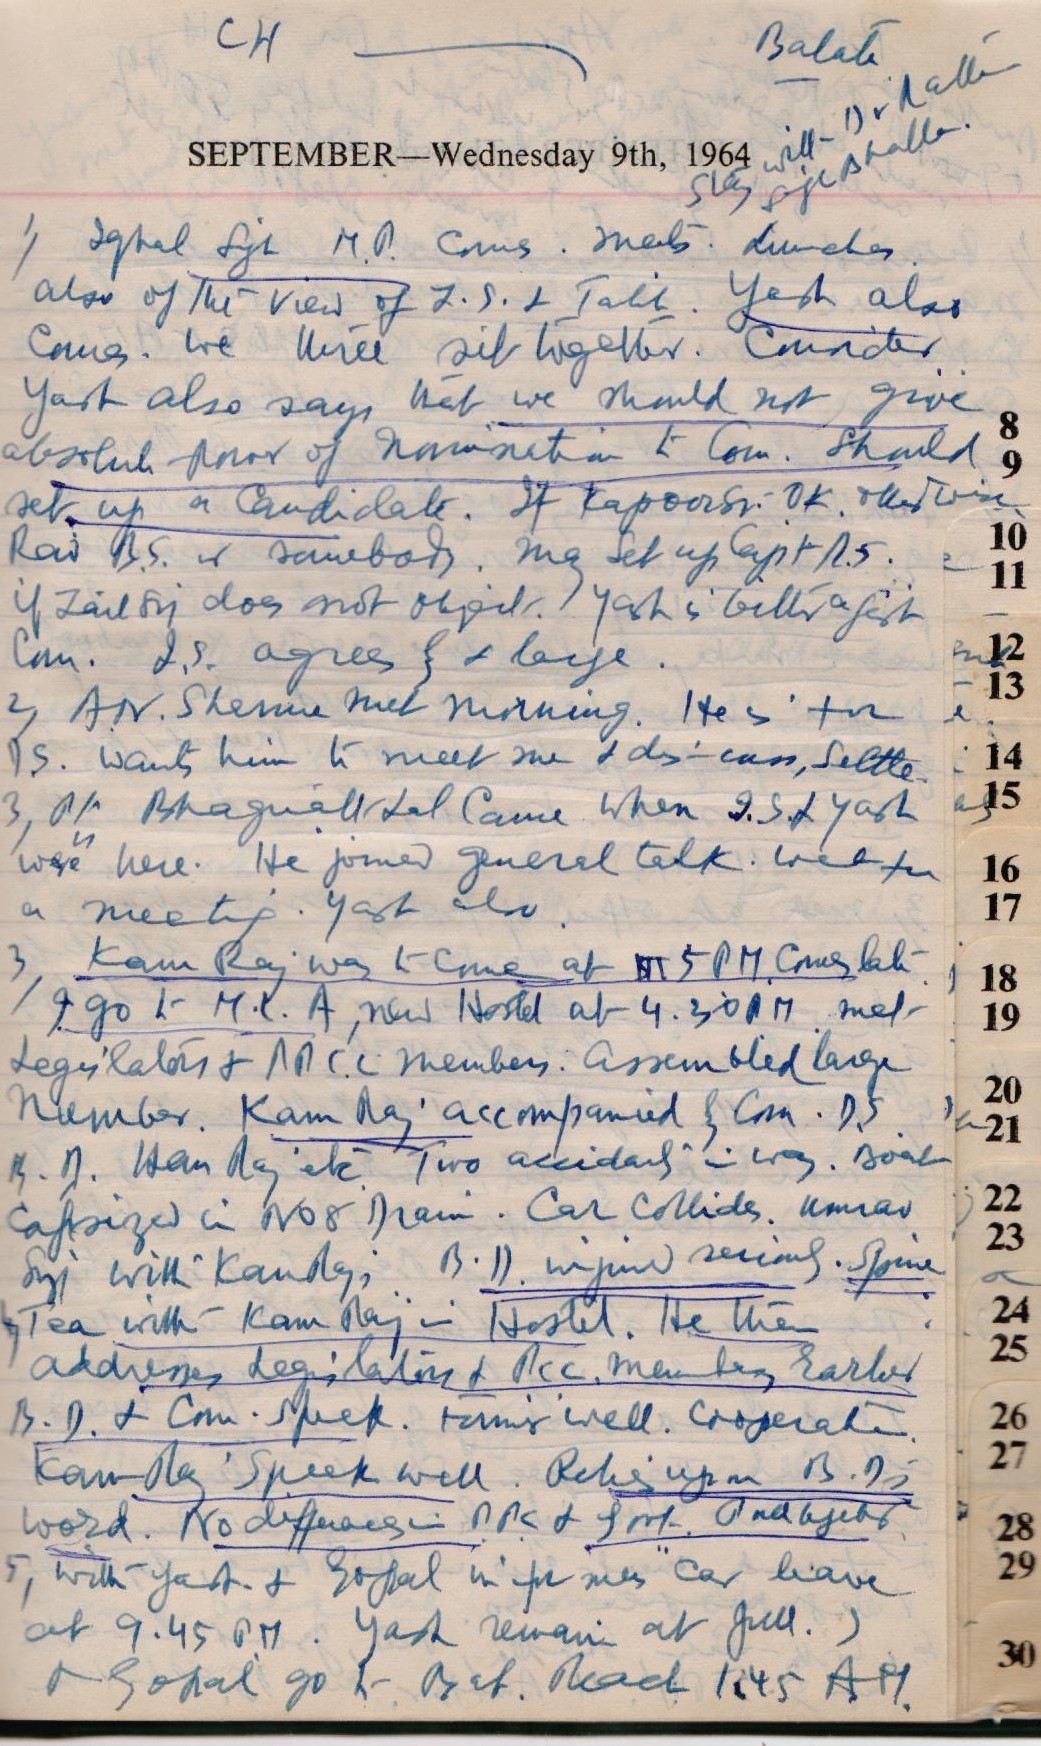 CH Batala
Stay with Dr Rattan
Singh Bhalla.
SEPTEMBER—Wednesday 9th, 1964
1, Iqbal Sgh M.P. Comes. meets. Lunches.
also of the view of I.S. & Talib. Yash also
Comes. We three sit together. Consider
Yash also says that we should not give
absolute power of Nomination to Com. Should
set up a Candidate. If Kapoor OK. otherwise
Rai B.S. or somebody. may set up Capt R.S.
if Zail Sij does not object. Yash is bitter agst
Com. I.S. agrees & large.
2, A.N. Sharma met morning. He is for
DS. wants him to meet me & discuss, Settle.
3, Pt. Bhagwat Lal Came when I.S. & Yash
were here. He joined general talk. went for
a meeting. Yash also.
3, Kam Raj was to come at 5 PM. Comes late
I go to M.L.A, new Hostel at 4.30 PM met
Legislators & PPCC members. Assembled large
Number. Kam Raj accompanied by Com. D.S
B.D. Ham Raj etc. Two accidents in way. Boat
Capsized in No 8 Drain. Car Collides. Umrao
Sij with Kam Raj. B.D. injured seriously. Spine
4, Tea with Kam Raj in Hostel. He then
addresses Legislators & PCC. members, Earlier
B.D. & Com. Speak. well. Cooperate.
Kam Raj Speak well. Relies upon B.D's
word. No differences in PPCC & Govt.
5, with Yash & Gopal in car leave
at 9.45 PM. Yash remain at Jull.
Gopal go to Bat. Reach 1.45 AM.
8
9
10
11
12
13
14
15
16
17
18
19
20
21
22
23
24
25
26
27
28
29
30